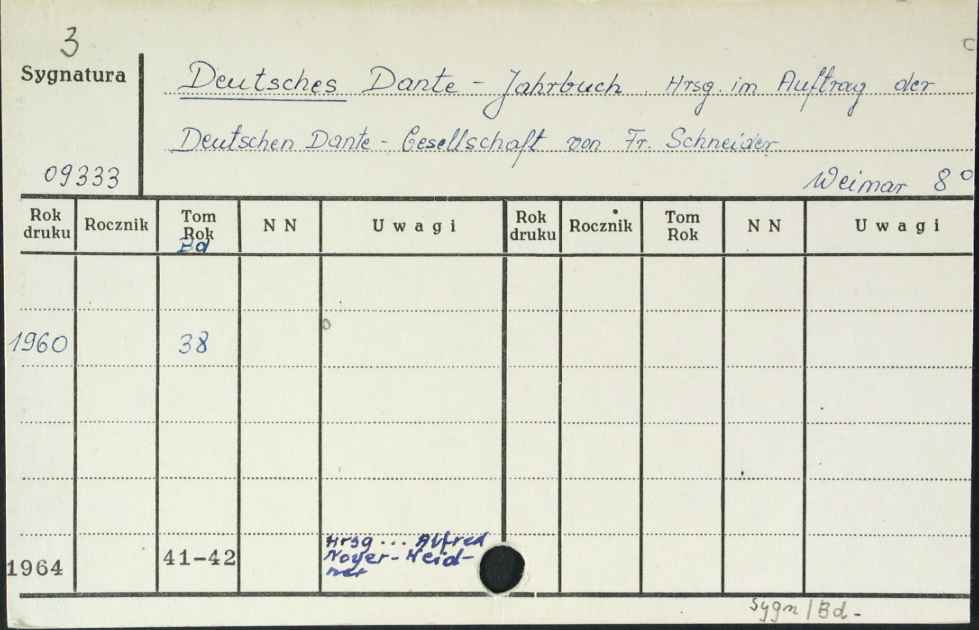 3
Sygnatura
Deutsches Dante - Jahrbuch. Hrsg. im Auftrag der
Deutschen Dante - Gesellschaft von Fr. Schneider
09333
Weimar 8°
Rok druku Rocznik Tom Rok Bd N N Uwagi Rok druku Rocznik Tom Rok N N Uwagi
1960 38
Hrsg... Alfred
Noyer-Heid-
ner
1964 41-42
Sygn/Bd-